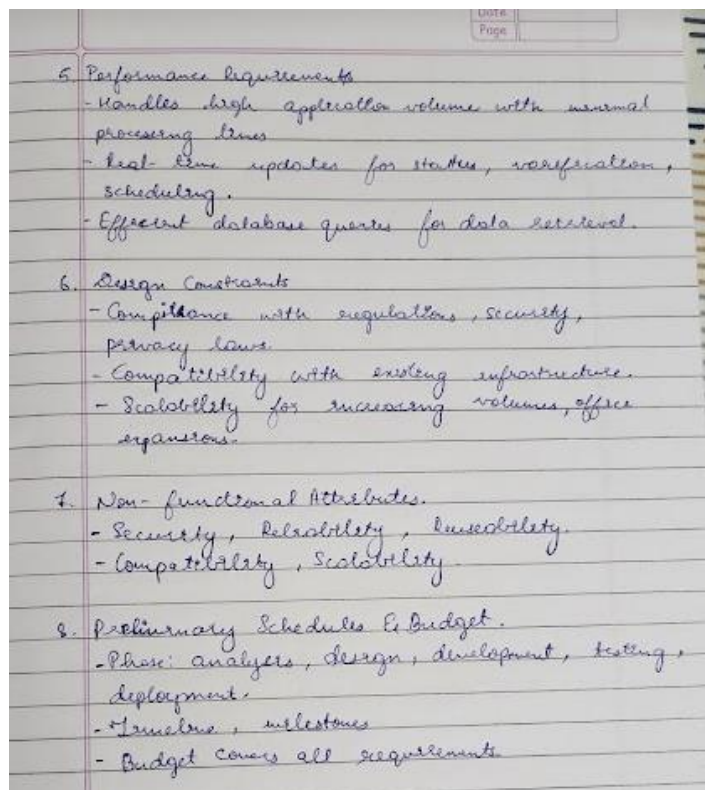 Date
Page
5. Performance Requirements
- Handles high application volume with minimal
processing times
- Real-time updates for status, varification,
scheduling.
- Efficient database queries for data retrieval.
6. Design Constraints
- Compitance with regulations, security,
privacy laws.
- Compatibility with existing infrastructure.
- Scalability for increasing volumes, office
expansions.
7. Non-functional Attributes.
- Security, Reliability, Reuseability.
- Compatibility, Scalability.
8. Preliminary Schedules & Budget.
- Phase: analysis, design, development, testing,
deployment.
- Timeline, milestones
- Budget covers all requirements